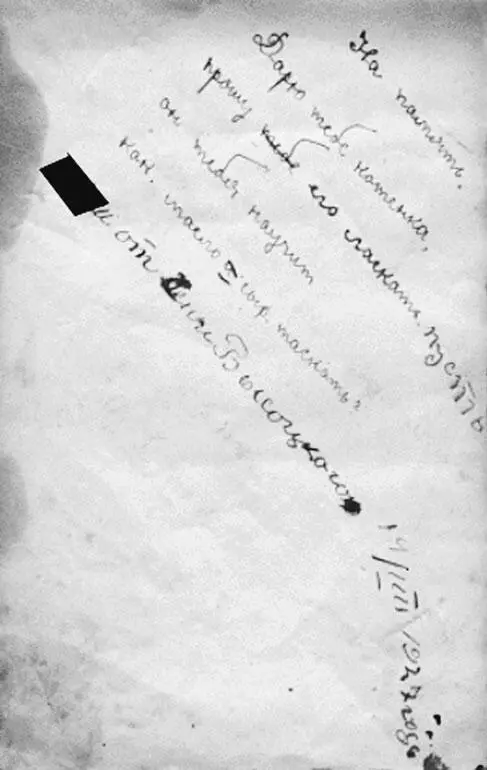 На память.
Дарю тебе котенка,
прошу его ласкать. пусть
он тебя научит
как. масло и сыр таскать
от Высоцкого
1927 года